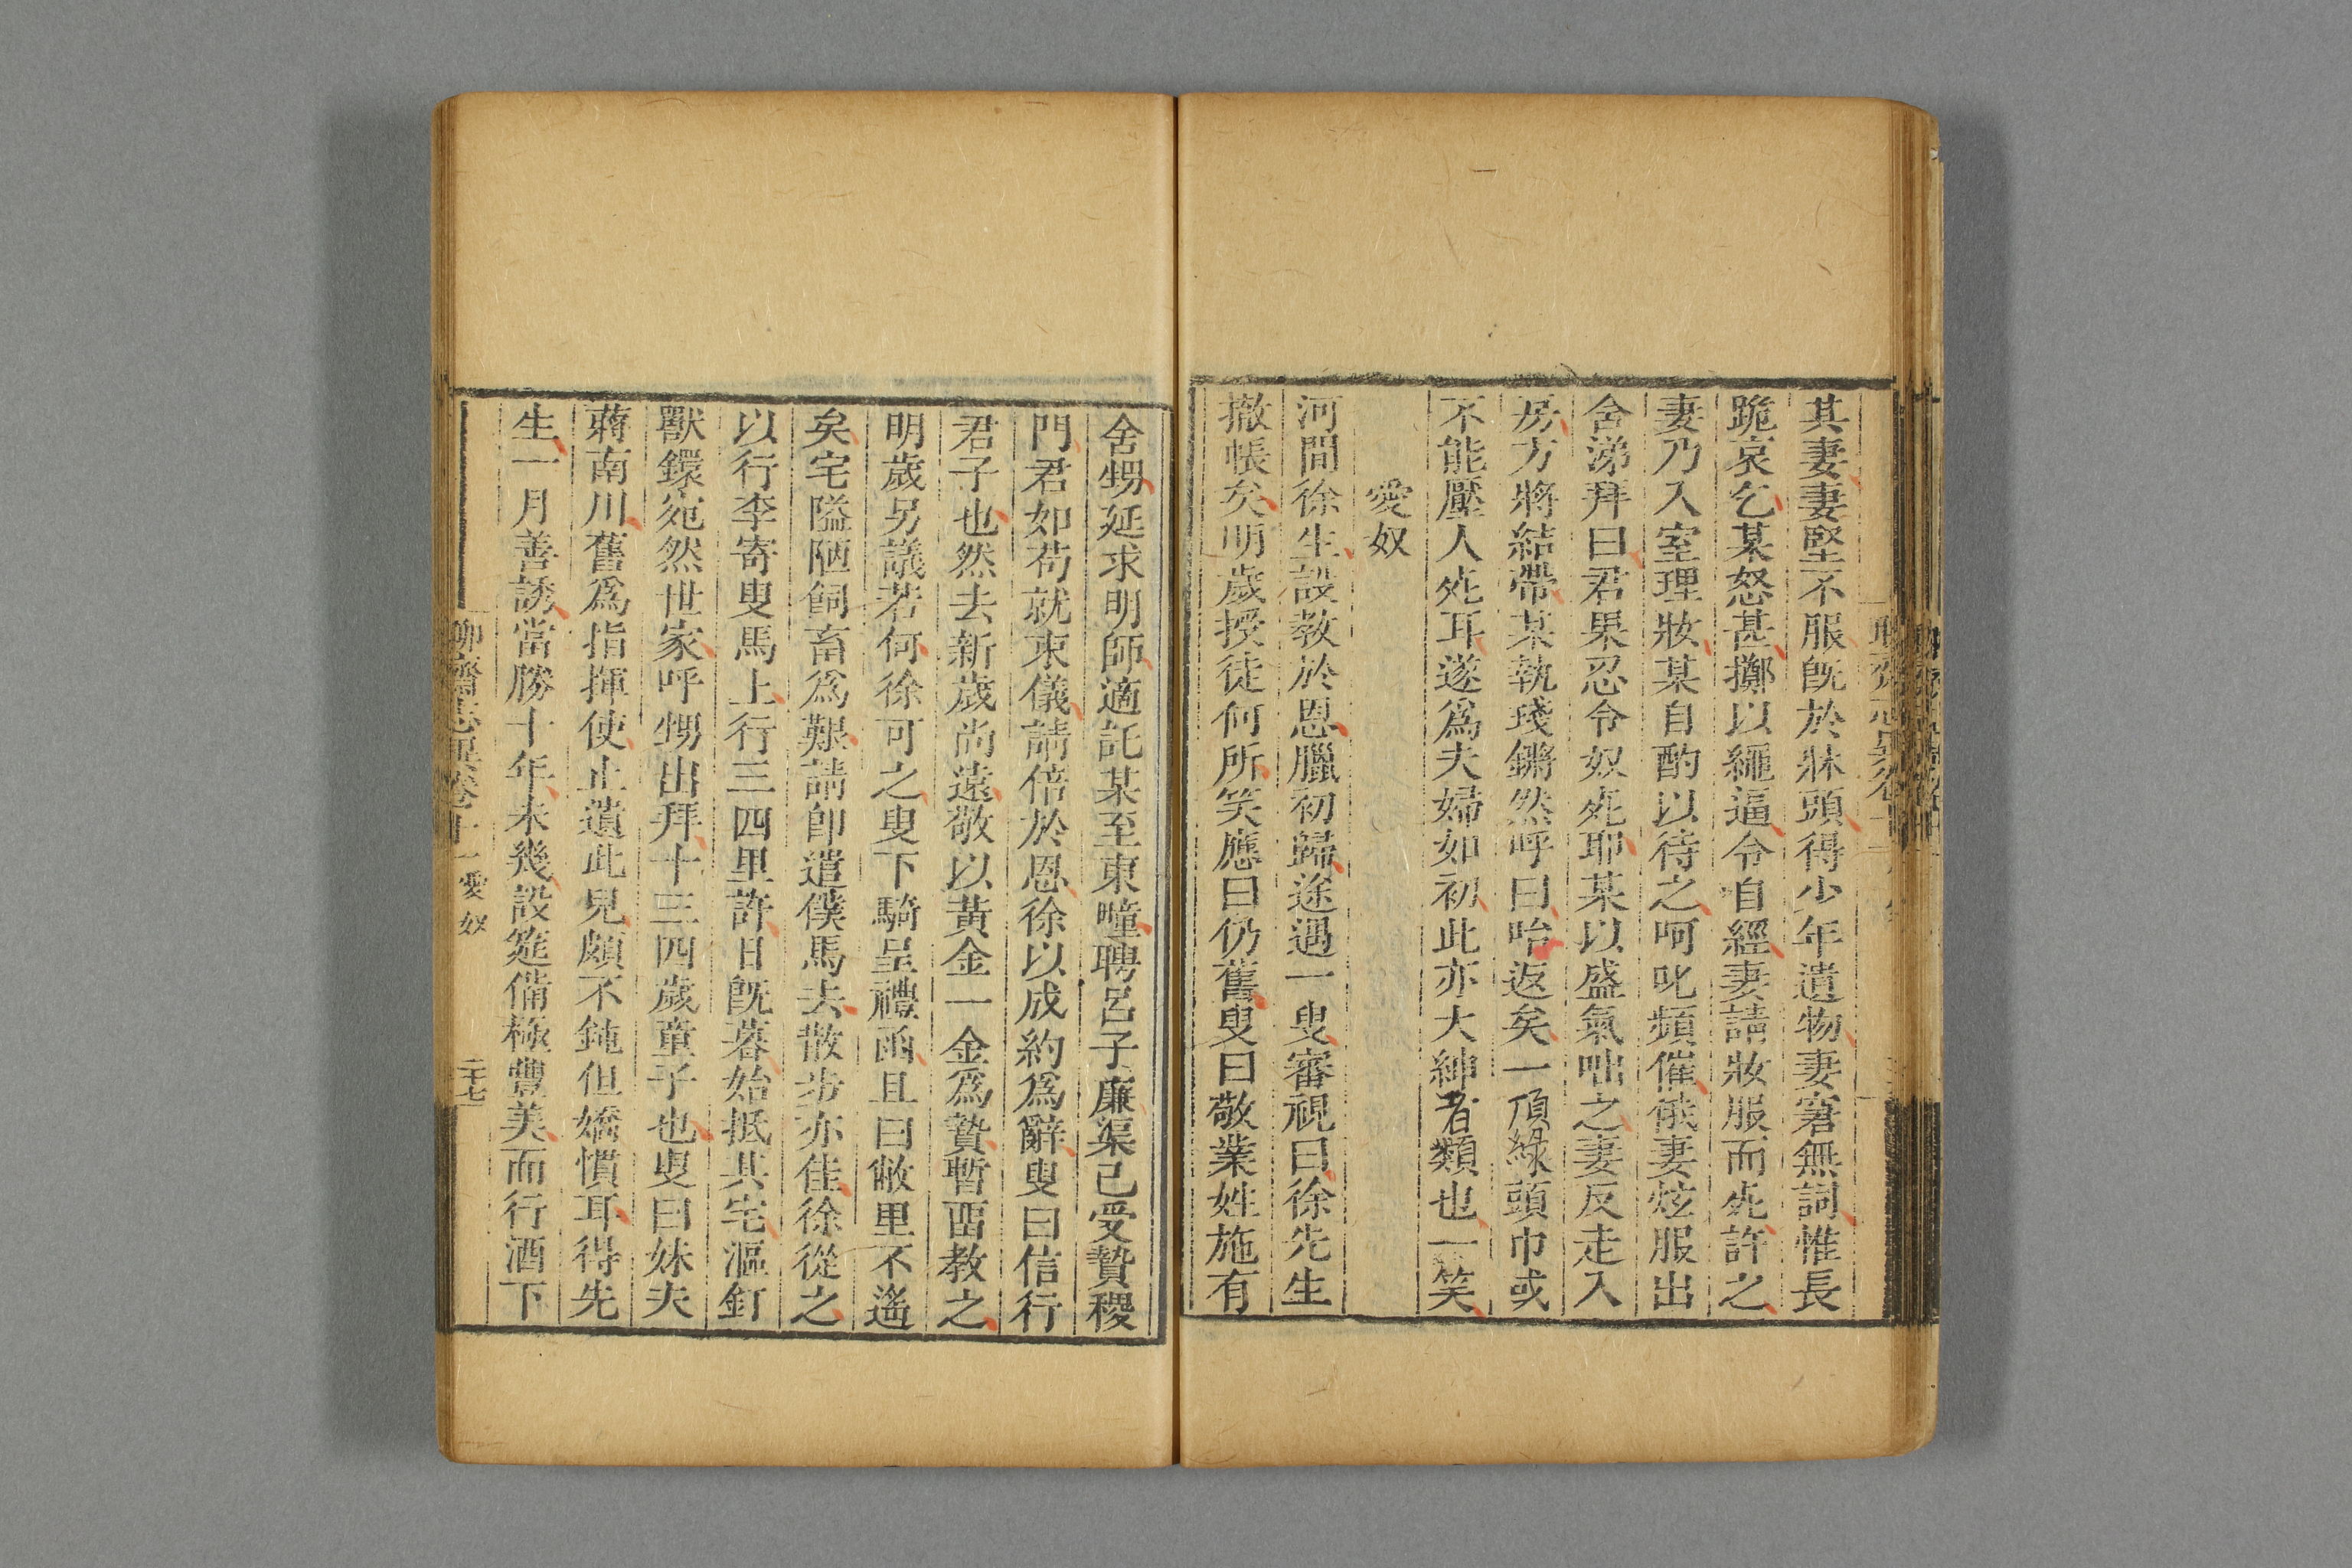 其妻妻堅不服旣於牀頭得少年遺物妻窘無詞惟長
跪哀乞某怒甚擲以繩逼令自經妻請妝服而死許之
妻乃入室理妝某自酌以待之呵叱頻催俄妻炫服出
含涕拜曰君果忍令奴死耶某以盛氣咄之妻反走入
房方將結帶某執琖鏘然呼曰咍返矣一頂綠頭巾或
不能壓人死耳遂爲夫婦如初此亦大紳者類也一笑
愛奴
河間徐生設教於恩臘初歸途遇一叟審視曰徐先生
撤帳矣明歲授徒何所笑應曰仍舊叟曰敬業姓施有
舍甥延求明師適託某至東疃聘呂子廉渠已受贄稷
門君如苟就束儀請倍於恩徐以成約爲辭叟曰信行
君子也然去新歲尚遠敬以黃金一金爲贄暫畱教之
明歲另議若何徐可之叟下騎呈禮函且曰敝里不遙
矣宅隘陋飼畜爲艱請卽遣僕馬去散步亦佳徐從之
以行李寄叟馬上行三四里許日旣暮始抵其宅漚釘
獸鐶宛然世家呼甥出拜十三四歲童子也叟曰妹夫
蔣南川舊爲指揮使止遺此兒頗不鈍但嬌慣耳得先
生一月善誘當勝十年未幾設筵備極豐美而行酒下
聊齋志異卷十一 愛奴 二十七